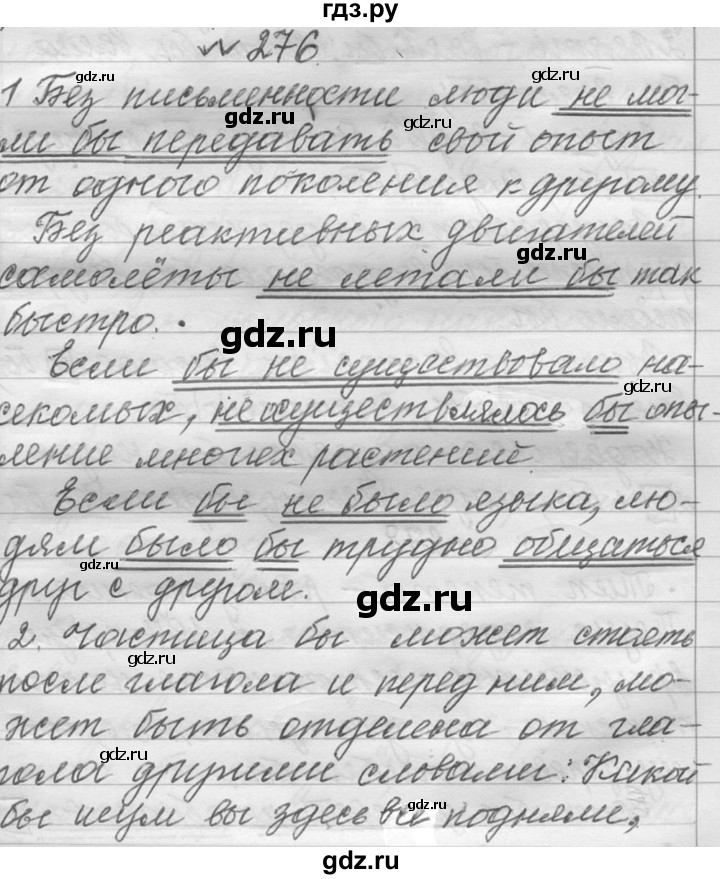 гдз.ру
№ 276
gdz.ru
1 Без письменности люди не мог-
gdz.ru
gdz.ru
ли бы передавать свой опыт
от одного поколения к другому.
Без реактивных двигателей
gdz.ru
самолёты не летали бы так
быстро.
gdz.ru
Если бы не существовало на-
gdz.ru
секомых, не осуществлялось бы опы-
ление многих растений
Если бы не было языка, лю-
дям было бы трудно общаться
gdz.ru
друг с другом.
gdz.ru
2. Частица бы может стоять
gdz.ru
после глагола и перед ним, мо-
жет быть отделена от гла-
gdz.ru
гола другими словами: Какой
бы шум вы здесь ни подняли,
gdz.ru
gdz.ru